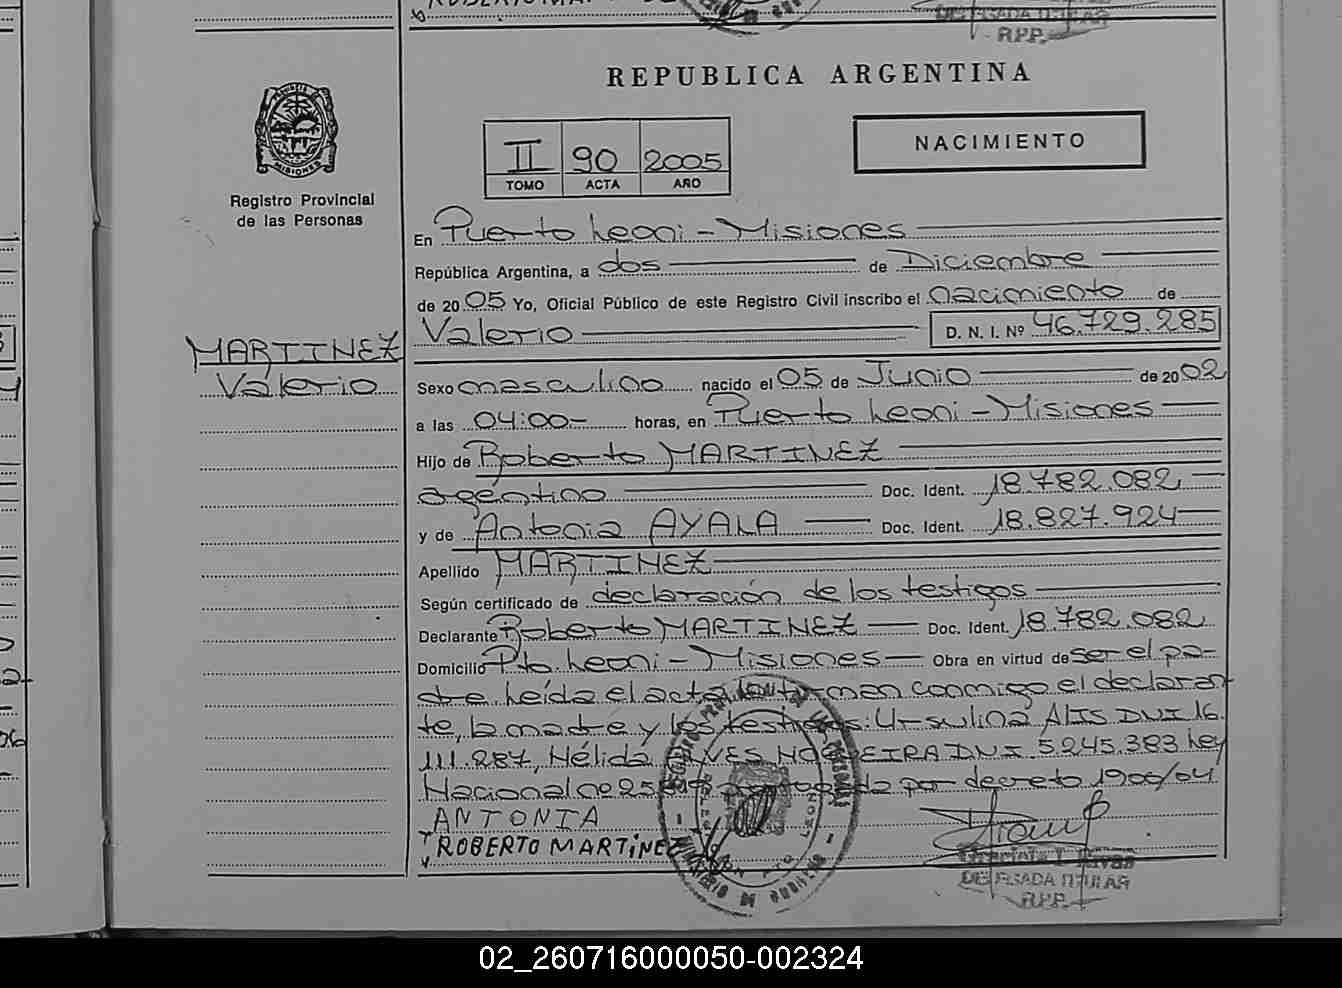 RPP.
REPUBLICA ARGENTINA
PROVINCIA DE MISIONES
Registro Provincial
de las Personas
II 90 2005
TOMO ACTA AÑO
NACIMIENTO
En Puerto Leoni - Misiones
República Argentina, a dos de Diciembre
de 2005 Yo, Oficial Público de este Registro Civil inscribo el nacimiento de
Valerio D. N. I. Nº 46.729.285
MARTINEZ
Valerio
Sexo masculino nacido el 05 de Junio de 2002
a las 04:00- horas, en Puerto Leoni - Misiones
Hijo de Roberto MARTINEZ
argentino Doc. Ident. 18.782.082
y de Antonia AYALA Doc. Ident. 18.827.924
Apellido MARTINEZ
Según certificado de declaración de los testigos
Declarante Roberto MARTINEZ Doc. Ident. 18.782.082
Domicilio Pto. Leoni - Misiones Obra en virtud de ser el pa-
dre. Leída el acta, la firman conmigo el declaran
te, la madre y los testigos: Ursulina ALIS DNI 16.
111.287, Nélida DNI 5.245.383 Ley
Nacional nº 25. por decreto 1906/04
ANTONIA
ROBERTO MARTiNEZ
Graciela I. Rivas
DELEGADA TITULAR
R.P.P.
02_260716000050-002324